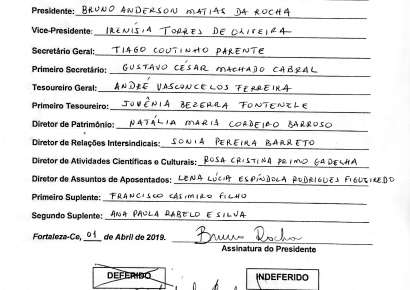 Presidente: BRUNO ANDERSON MATIAS DA ROCHA
Vice-Presidente: IRENÍSIA TORRES DE OLIVEIRA
Secretário Geral: TIAGO COUTINHO PARENTE
Primeiro Secretário: GUSTAVO CÉSAR MACHADO CABRAL
Tesoureiro Geral: ANDRÉ VASCONCELOS FERREIRA
Primeiro Tesoureiro: JUVÊNIA BEZERRA FONTENELE
Diretor de Patrimônio: NATÁLIA MARIA CORDEIRO BARROSO
Diretor de Relações Intersindicais: SONIA PEREIRA BARRETO
Diretor de Atividades Científicas e Culturais: ROSA CRISTINA PRIMO GADELHA
Diretor de Assuntos de Aposentados: LENA LÚCIA ESPÍNDOLA RODRIGUES FIGUEIREDO
Primeiro Suplente: FRANCISCO CASIMIRO FILHO
Segundo Suplente: ANA PAULA RABELO E SILVA
Fortaleza-Ce, 01 de Abril de 2019. Bruno Rocha
Assinatura do Presidente
DEFERIDO INDEFERIDO